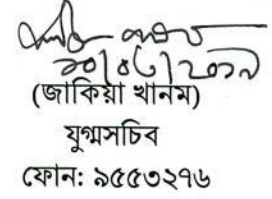 ২০/০৬/২০১৯
(জাকিয়া খানম)
যুগ্মসচিব
ফোন: ৯৫৫৩২৭৬